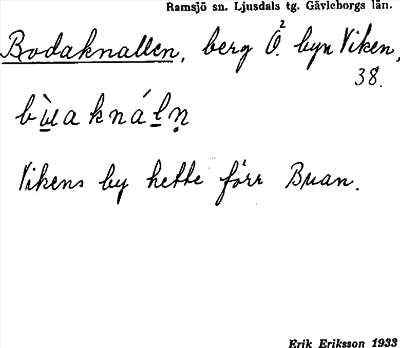 Ramsjö sn. Ljusdals tg. Gävleborgs län.
Bodaknallen, berg Ö.² byn Viken,
38.
bù̲aknál̲ṇ
Vikens by hette förr Buan.
Erik Eriksson 1933